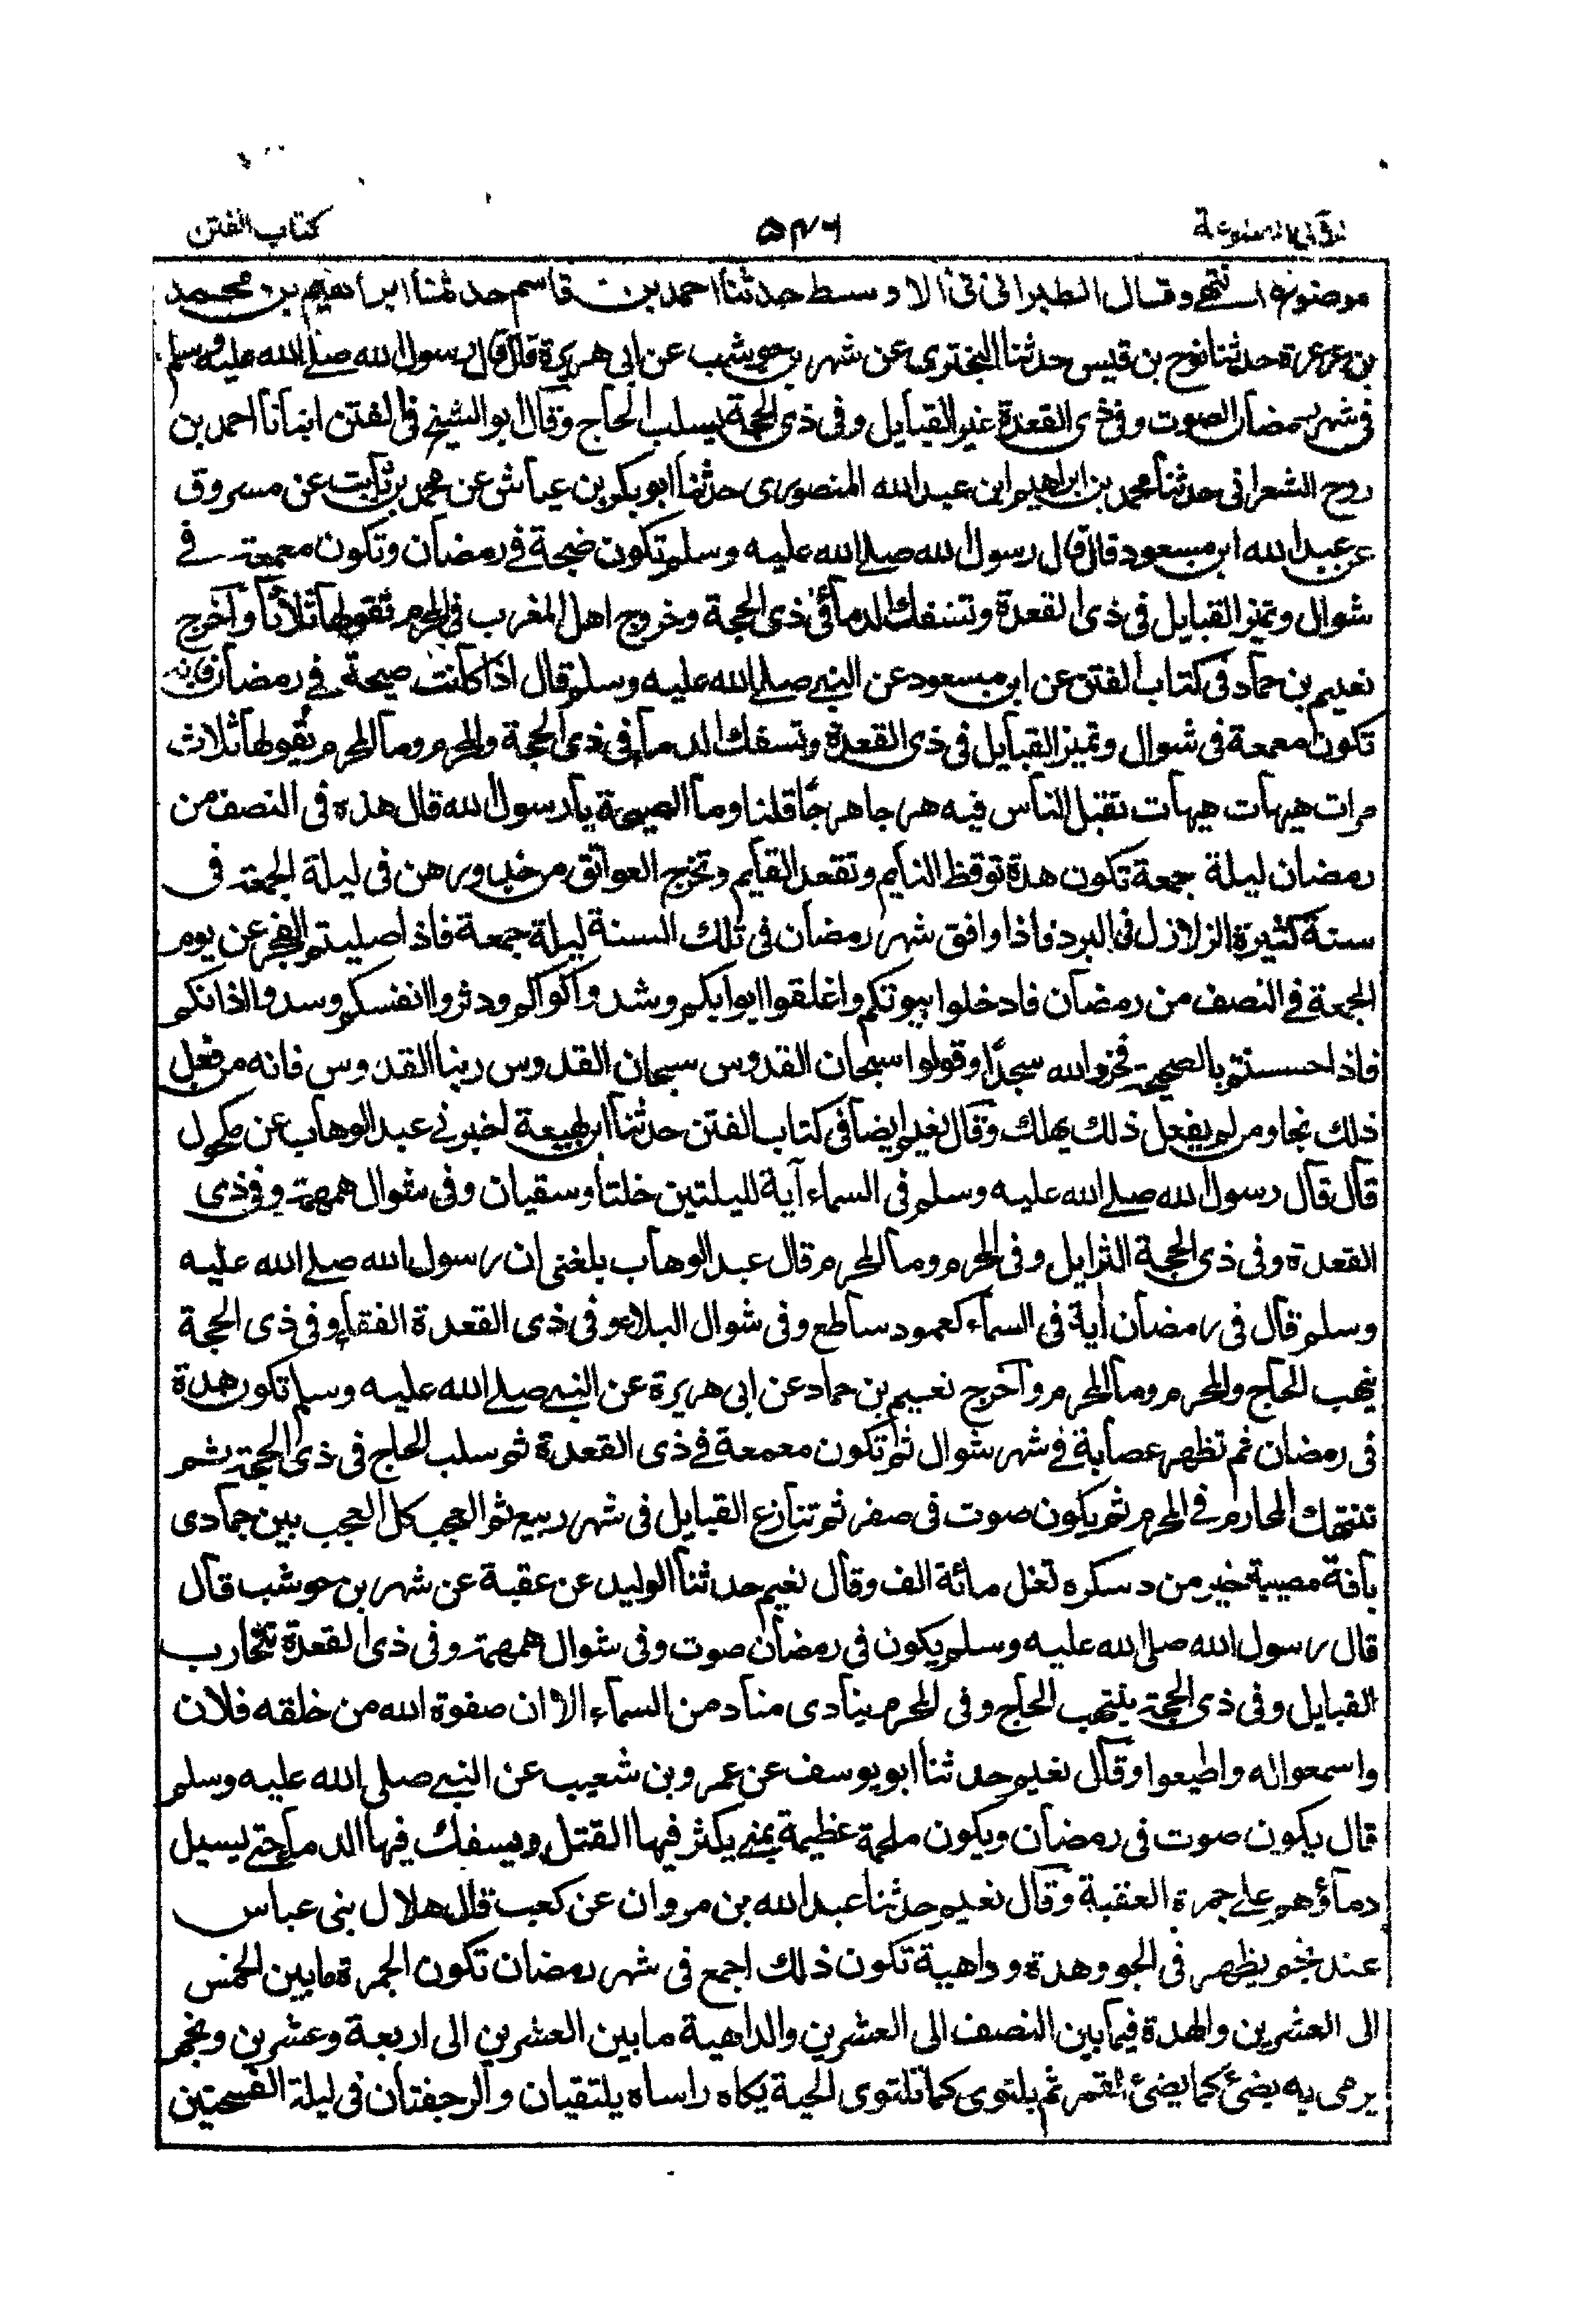 كتاب الفتن
موضوع انتهى وقال الطبرانى فى الاوسط حدثنا احمد بن قاسم حدثنا ابراهيم بن محمد
بن عرعرة حدثنا نوح بن قيس حدثنا البخترى عن شهر بن حوشب عن ابى هريرة قال قال رسول الله صلى الله عليه وسلم
فى شهر رمضان الصوت وفى ذى القعدة القبايل وفى ذى الحجة يسلب الحاج وقال ابو الشيخ فى الفتن انبانا احمد بن
روح الشعرانى حدثنا محمد بن ابراهيم ابن عبد الله المنصورى حدثنا ابو بكر بن عياش عن محمد بن ثابت عن مسروق
عن عبد الله ابن مسعود قال قال رسول الله صلى الله عليه وسلم تكون ضجة فى رمضان وتكون معمعة فى
شوال وتميز القبايل فى ذى القعدة وتسفك الدمأ فى ذى الحجة وخروج اهل المغرب فى المحرم ثقولها ثلاثا وأخرج
نعيم بن حماد فى كتاب الفتن عن ابن مسعود عن النبى صلى الله عليه وسلم قال اذا كانت صيحة فى رمضان فانه
تكون معمعة فى شوال وتميز القبايل فى ذى القعدة وتسفك الدمأ فى ذى الحجة والمحرم وما المحرم يقولها ثلاث
مرات هيهات هيهات تقتل الناس فيه هرجا هرجا قلنا وما الصيحة يا رسول الله قال هذه فى النصف من
رمضان ليلة جمعة تكون هدة توقظ النايم وتقعد القايم وتخرج العواتق من خدورهن فى ليلة الجمعة فى
سنة كثيرة الزلازل فى البرد فاذا وافق شهر رمضان فى تلك السنة ليلة جمعة فاذا صليتم الفجر عن يوم
الجمعة فى النصف من رمضان فادخلوا بيوتكم واغلقوا ابوابكم وشدوا كواكم ودثروا انفسكم وسدوا اذانكم
فاذا احسستم بالصيحة فخروا لله سجدا وقولوا سبحان القدوس سبحان القدوس ربنا القدوس فانه من فعل
ذلك نجا ومن لم يفعل ذلك يهلك وقال نعيم ايضا فى كتاب الفتن حدثنا ابن لهيعة اخبرنى عبد الوهاب عن مكحول
قال قال رسول الله صلى الله عليه وسلم فى السماء آية لليلتين خلتا وسقيان وفى شوال همهمة وفى ذى
القعدة وفى ذى الحجة الترايل وفى المحرم وما المحرم قال عبد الوهاب بلغنى ان رسول الله صلى الله عليه
وسلم قال فى رمضان أية فى السماء كعمود ساطع وفى شوال البلاء وفى ذى القعدة الفقأ وفى ذى الحجة
ينهب الحاج والمحرم وما المحرم وآخرج نعيم بن حماد عن ابى هريرة عن النبى صلى الله عليه وسلم تكون هدة
فى رمضان ثم تظهر عصابة فى شهر شوال ثم تكون معمعة فى ذى القعدة ثم سلب الحاج فى ذى الحجة ثم
تنتهك المحارم فى المحرم ثم يكون صوت فى صفر ثم تنازع القبايل فى شهر ربيع ثم العجب كل العجب بين جمادى
خير من دسكره تغل مائة الف وقال نعيم حدثنا الوليد عن عقبة عن شهر بن حوشب قال
قال رسول الله صلى الله عليه وسلم يكون فى رمضان صوت وفى شوال همهمة وفى ذى القعدة تتحارب
القبايل وفى ذى الحجة ينتهب الحاج وفى المحرم ينادى مناد من السماء الا ان صفوة الله من خلقه فلان
واسمعوا له واطيعوا وقال نعيم حدثنا ابو يوسف عن عمرو بن شعيب عن النبى صلى الله عليه وسلم
قال يكون صوت فى رمضان ويكون ملحمة عظيمة بمنى يكثر فيها القتل ويسفك فيها الدمأ حتى يسيل
دماؤهم على جمرة العقبة وقال نعيم حدثنا عبد الله بن مروان عن كعب قال هلال بنى عباس
عند نجم يظهر فى الجو وهدة وداهية تكون ذلك اجمع فى شهر رمضان تكون الحمرة ما بين الخمس
الى العشرين والهدة فيما بين النصف الى العشرين والداهية ما بين العشرين الى اربعة وعشرين ونجم
يرمى به يضئ كما يضئ القمر ثم يلتوى كما تلتوى الحية يكاه راساه يلتقيان والرجفتان فى ليلة الفسحتين